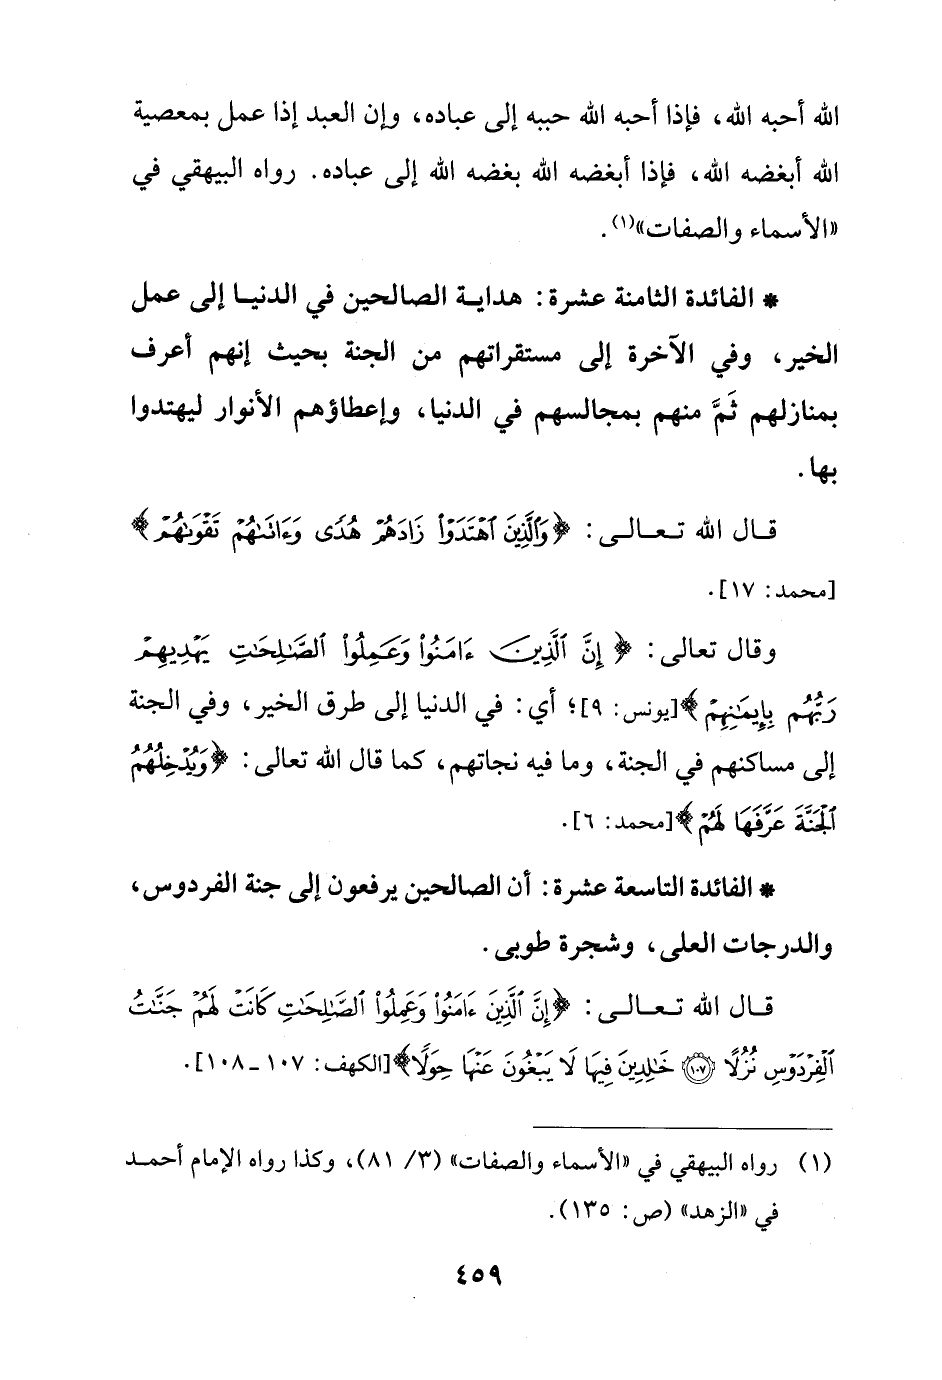 الله أحبه الله، فإذا أحبه الله حببه إلى عباده، وإن العبد إذا عمل بمعصية
الله أبغضه الله، فإذا أبغضه الله بغضه الله إلى عباده. رواه البيهقي في
«الأسماء والصفات»(١).
* الفائدة الثامنة عشرة: هداية الصالحين في الدنيا إلى عمل
الخير، وفي الآخرة إلى مستقراتهم من الجنة بحيث إنهم أعرف
بمنازلهم ثَمَّ منهم بمجالسهم في الدنيا، وإعطاؤهم الأنوار ليهتدوا
بها.
قال الله تعالى: ﴿وَٱلَّذِينَ ٱهْتَدَوْا۟ زَادَهُمْ هُدًى وَءَاتَىٰهُمْ تَقْوَىٰهُمْ﴾
[محمد: ١٧].
وقال تعالى: ﴿إِنَّ ٱلَّذِينَ ءَامَنُوا۟ وَعَمِلُوا۟ ٱلصَّٰلِحَٰتِ يَهْدِيهِمْ
رَبُّهُم بِإِيمَٰنِهِمْ﴾[يونس: ٩]؛ أي: في الدنيا إلى طرق الخير، وفي الجنة
إلى مساكنهم في الجنة، وما فيه نجاتهم، كما قال الله تعالى: ﴿وَيُدْخِلُهُمُ
ٱلْجَنَّةَ عَرَّفَهَا لَهُمْ﴾[محمد: ٦].
* الفائدة التاسعة عشرة: أن الصالحين يرفعون إلى جنة الفردوس،
والدرجات العلى، وشجرة طوبى.
قال الله تعالى: ﴿إِنَّ ٱلَّذِينَ ءَامَنُوا۟ وَعَمِلُوا۟ ٱلصَّٰلِحَٰتِ كَانَتْ لَهُمْ جَنَّٰتُ
ٱلْفِرْدَوْسِ نُزُلًا ١٠٧ خَٰلِدِينَ فِيهَا لَا يَبْغُونَ عَنْهَا حِوَلًا﴾[الكهف: ١٠٧ - ١٠٨].
(١) رواه البيهقي في «الأسماء والصفات» (٣/ ٨١)، وكذا رواه الإمام أحمد
في «الزهد» (ص: ١٣٥).
٤٥٩